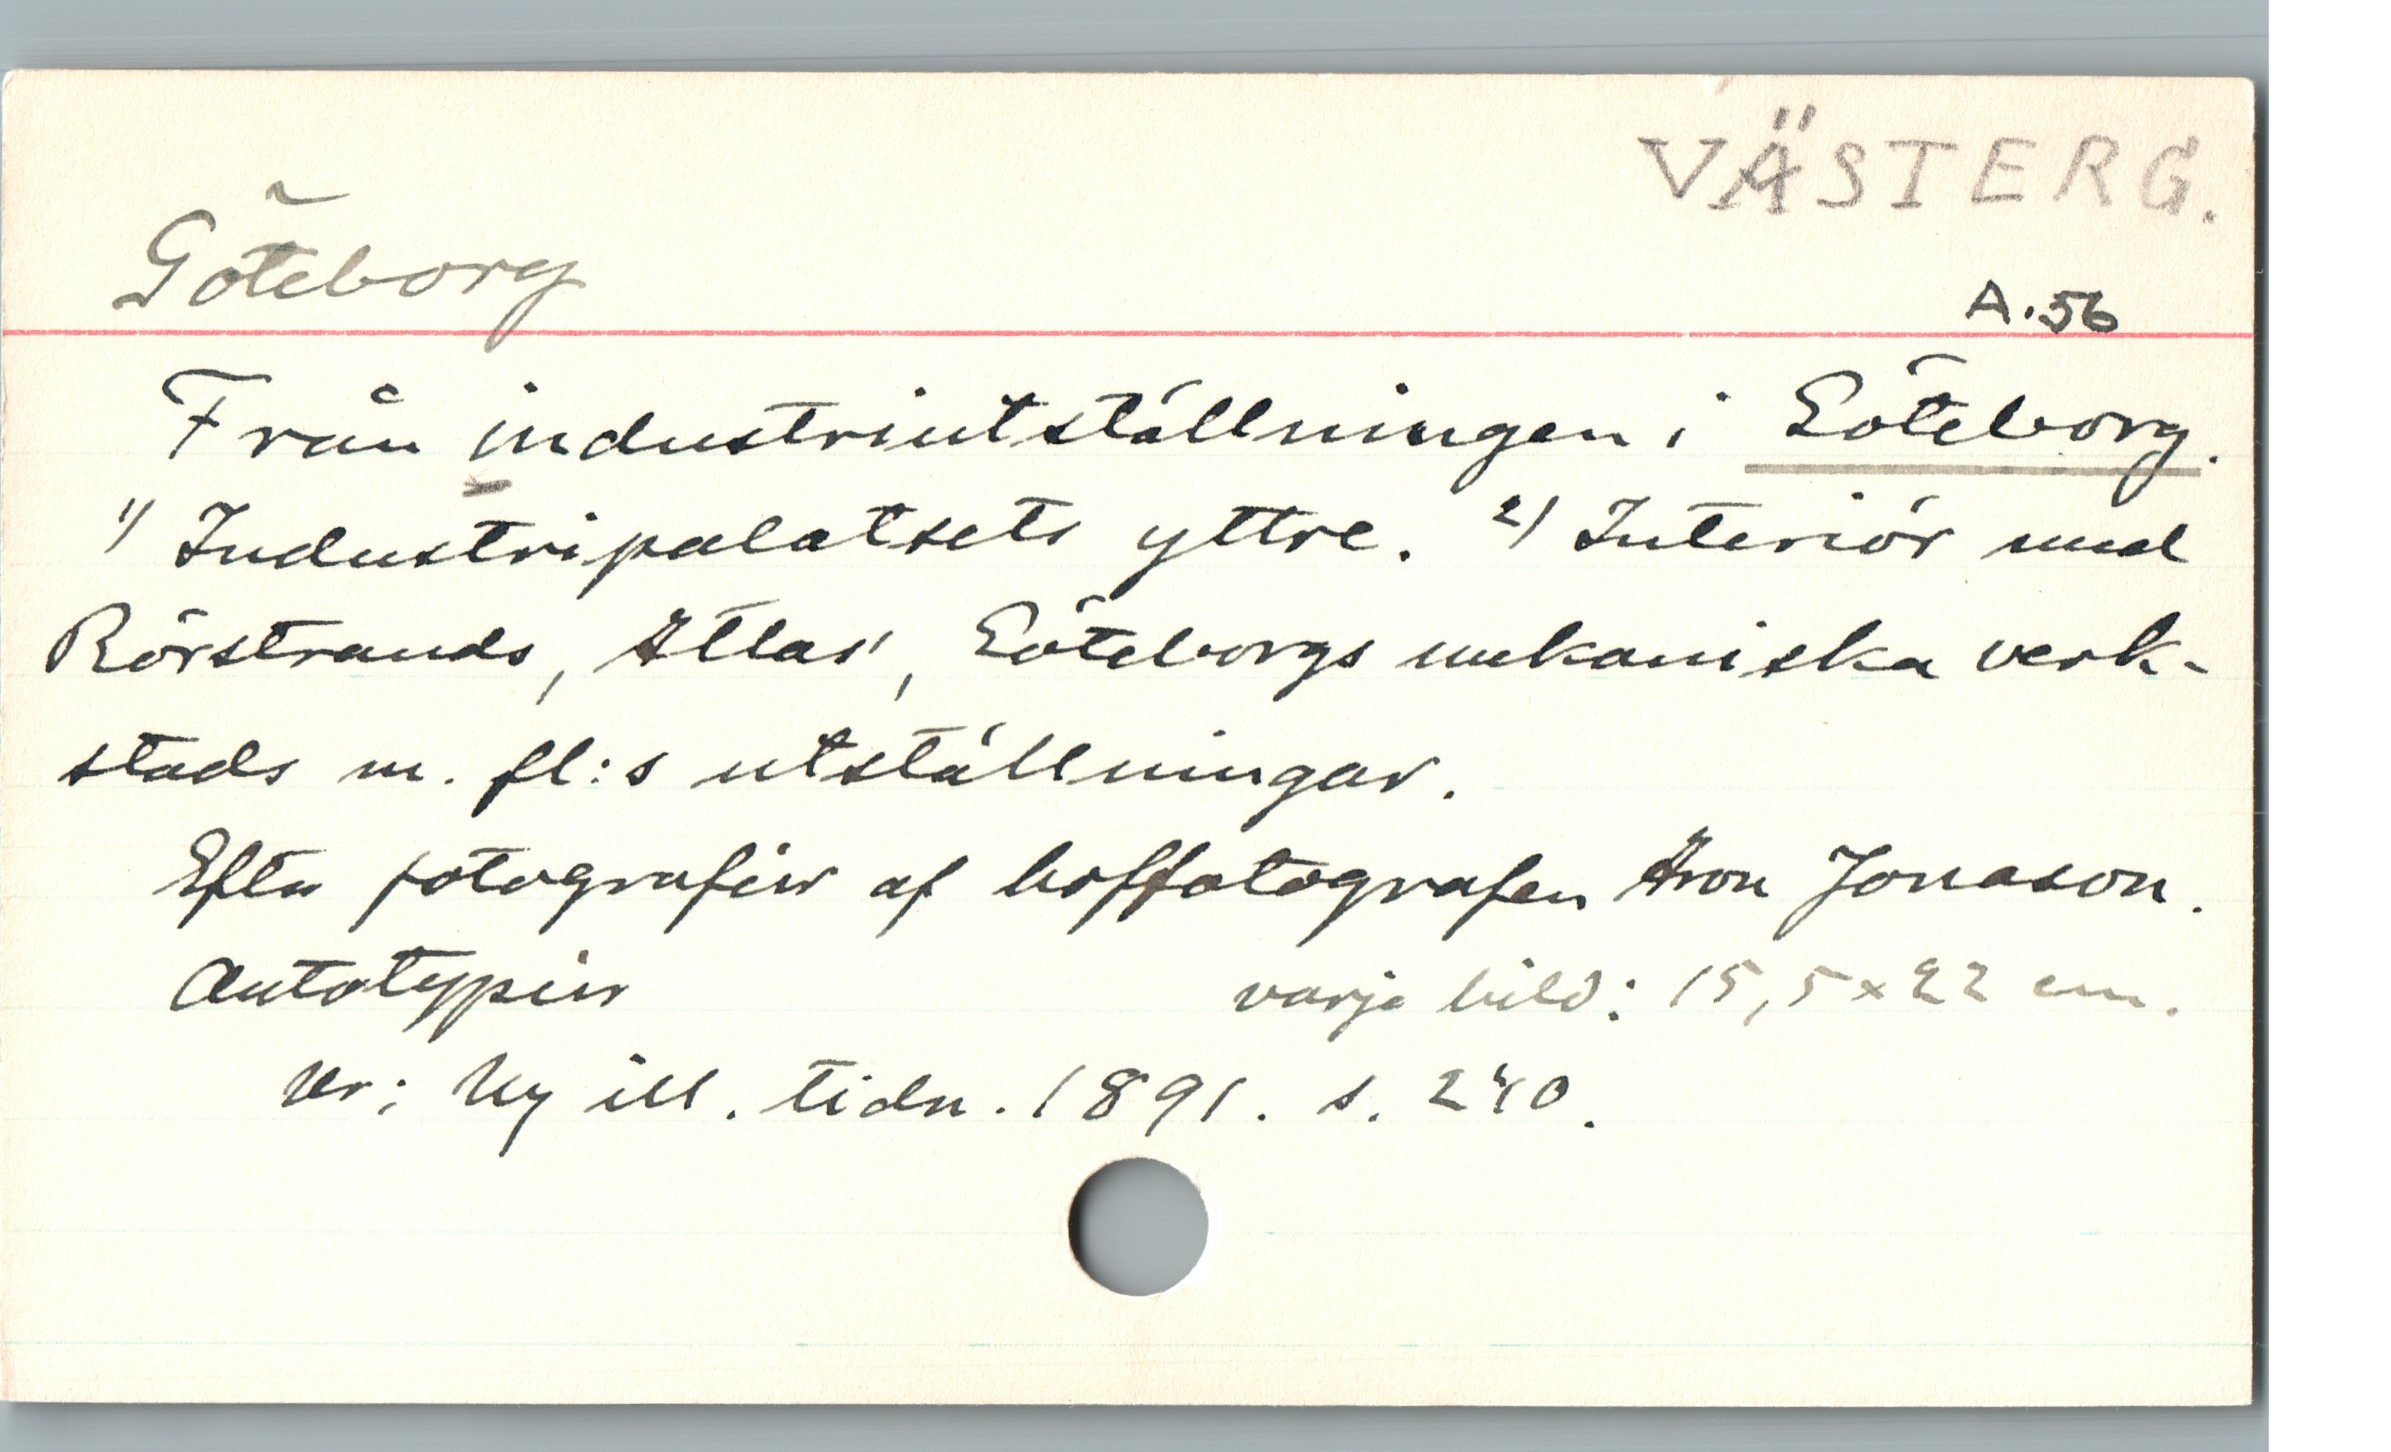 VÄSTERG.
Göteborg
A.56
Från industriutställningen i Göteborg.
1) Industripalatsets yttre. 2) Interiör med
Rörstrands, Atlas', Göteborgs mekaniska verk-
stads m. fl:s utställningar.
Efter fotografier af hoffotografen Aron Jonason.
Autotypier varje bild: 15,5 x 22 cm.
Ur: Ny ill. tidn. 1891. s. 240.